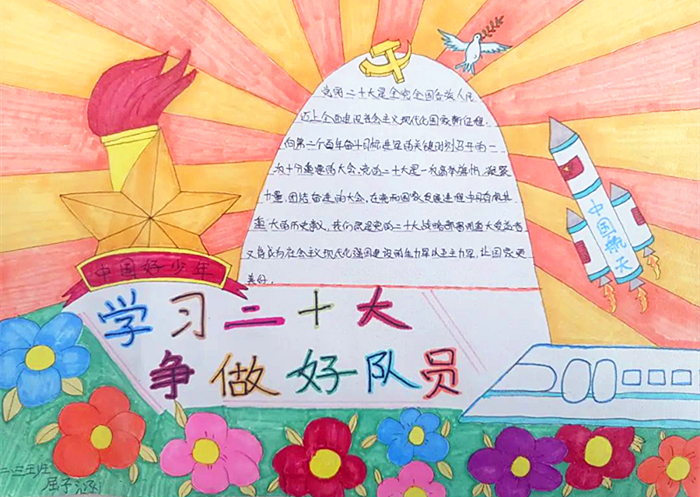 党的二十大是全党全国各族人民
迈上全面建设社会主义现代化国家新征程,
向第二个百年奋斗目标进军的关键时刻召开的一
次十分重要的大会,党的二十大是一次高举旗帜、凝聚
力量、团结奋进的大会,在党和国家发展进程中具有极其
重大的历史意义,我们一定党的二十大战略部署
成为社会主义现代化强国建设的主力军,让国家更
美好。
中国好少年
学习二十大
争做好队员
中国航天
二三班
屈子涵